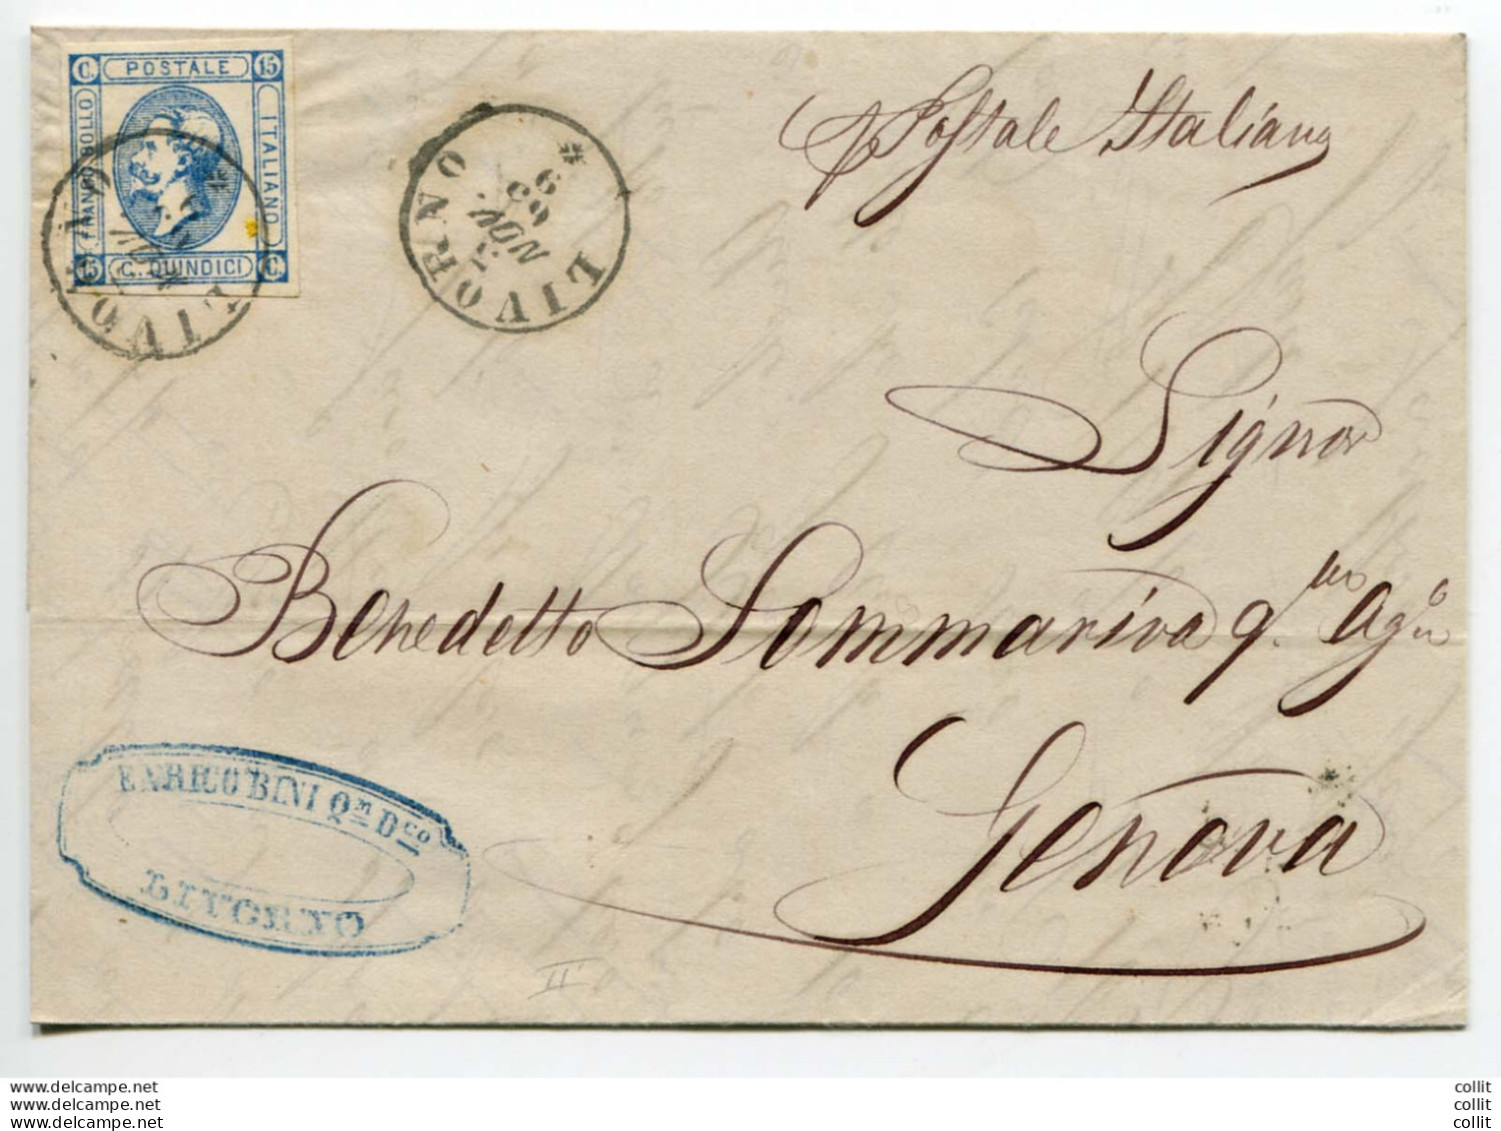 C. POSTALE 15
FRANCO BOLLO
ITALIANO
15 C. QUINDICI C.
LIVORNO
LIVORNO
5 NOV. 63
Postale Italiano
Signor
Benedetto Sommariva q.
Genova
ENRICO BINI Qm Dco
LIVORNO
II
www.delcampe.net
www.delcampe.net
www.delcampe.net
collit
collit
collit